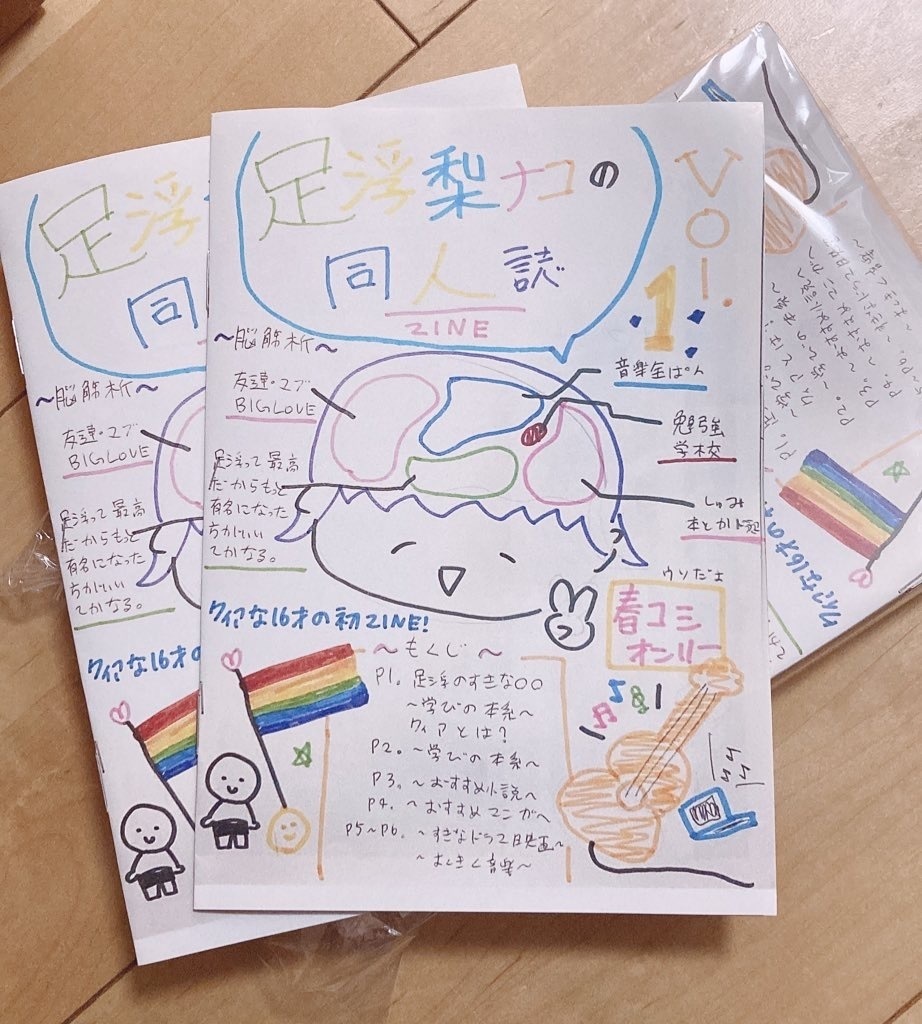 足浮梨ナコの
同人誌
ZINE
VOl.
1
〜脳解析〜
友達・ユブ
BIGLOVE
足浮って最高
だからもっと
有名になった
方がいい
てかなる。
音楽全ぱん
勉強
学校
しゅみ
本とか
ウソだよ
春コミ
オンリー
クィアな16才の初ZINE!
〜もくじ〜
P1。足浮のすきな〇〇
〜学びの本系〜
クィアとは?
P2。〜学びの本系〜
P3。〜おすすめ小説〜
P4。〜おすすめマンガ〜
P5〜P6。〜すきなドラマ映画〜
〜よくきく音楽〜
足浮
同
〜脳解析〜
友達・ユブ
BIGLOVE
足浮って最高
だからもっと
有名になった
方がいい
てかなる。
クィアな16才の